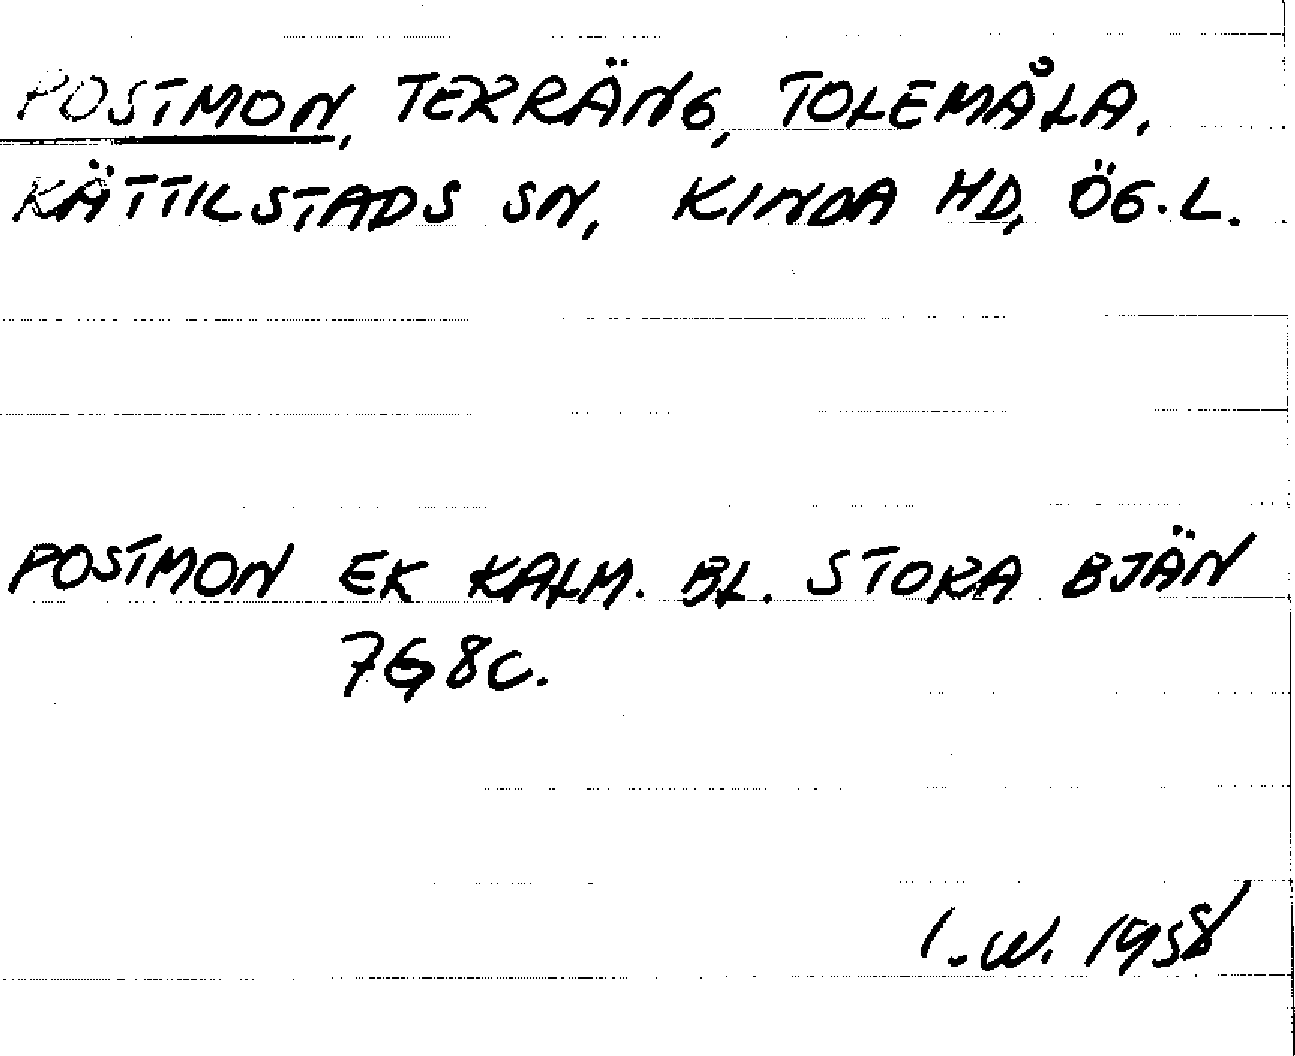 POSTMON, TERRÄNG, TOLEMÅLA,
KÄTTILSTADS SN, KINDA HD, ÖG.L.
POSTMON EK KALM. BL. STORA BJÄN
7G8C.
I.W. 1958